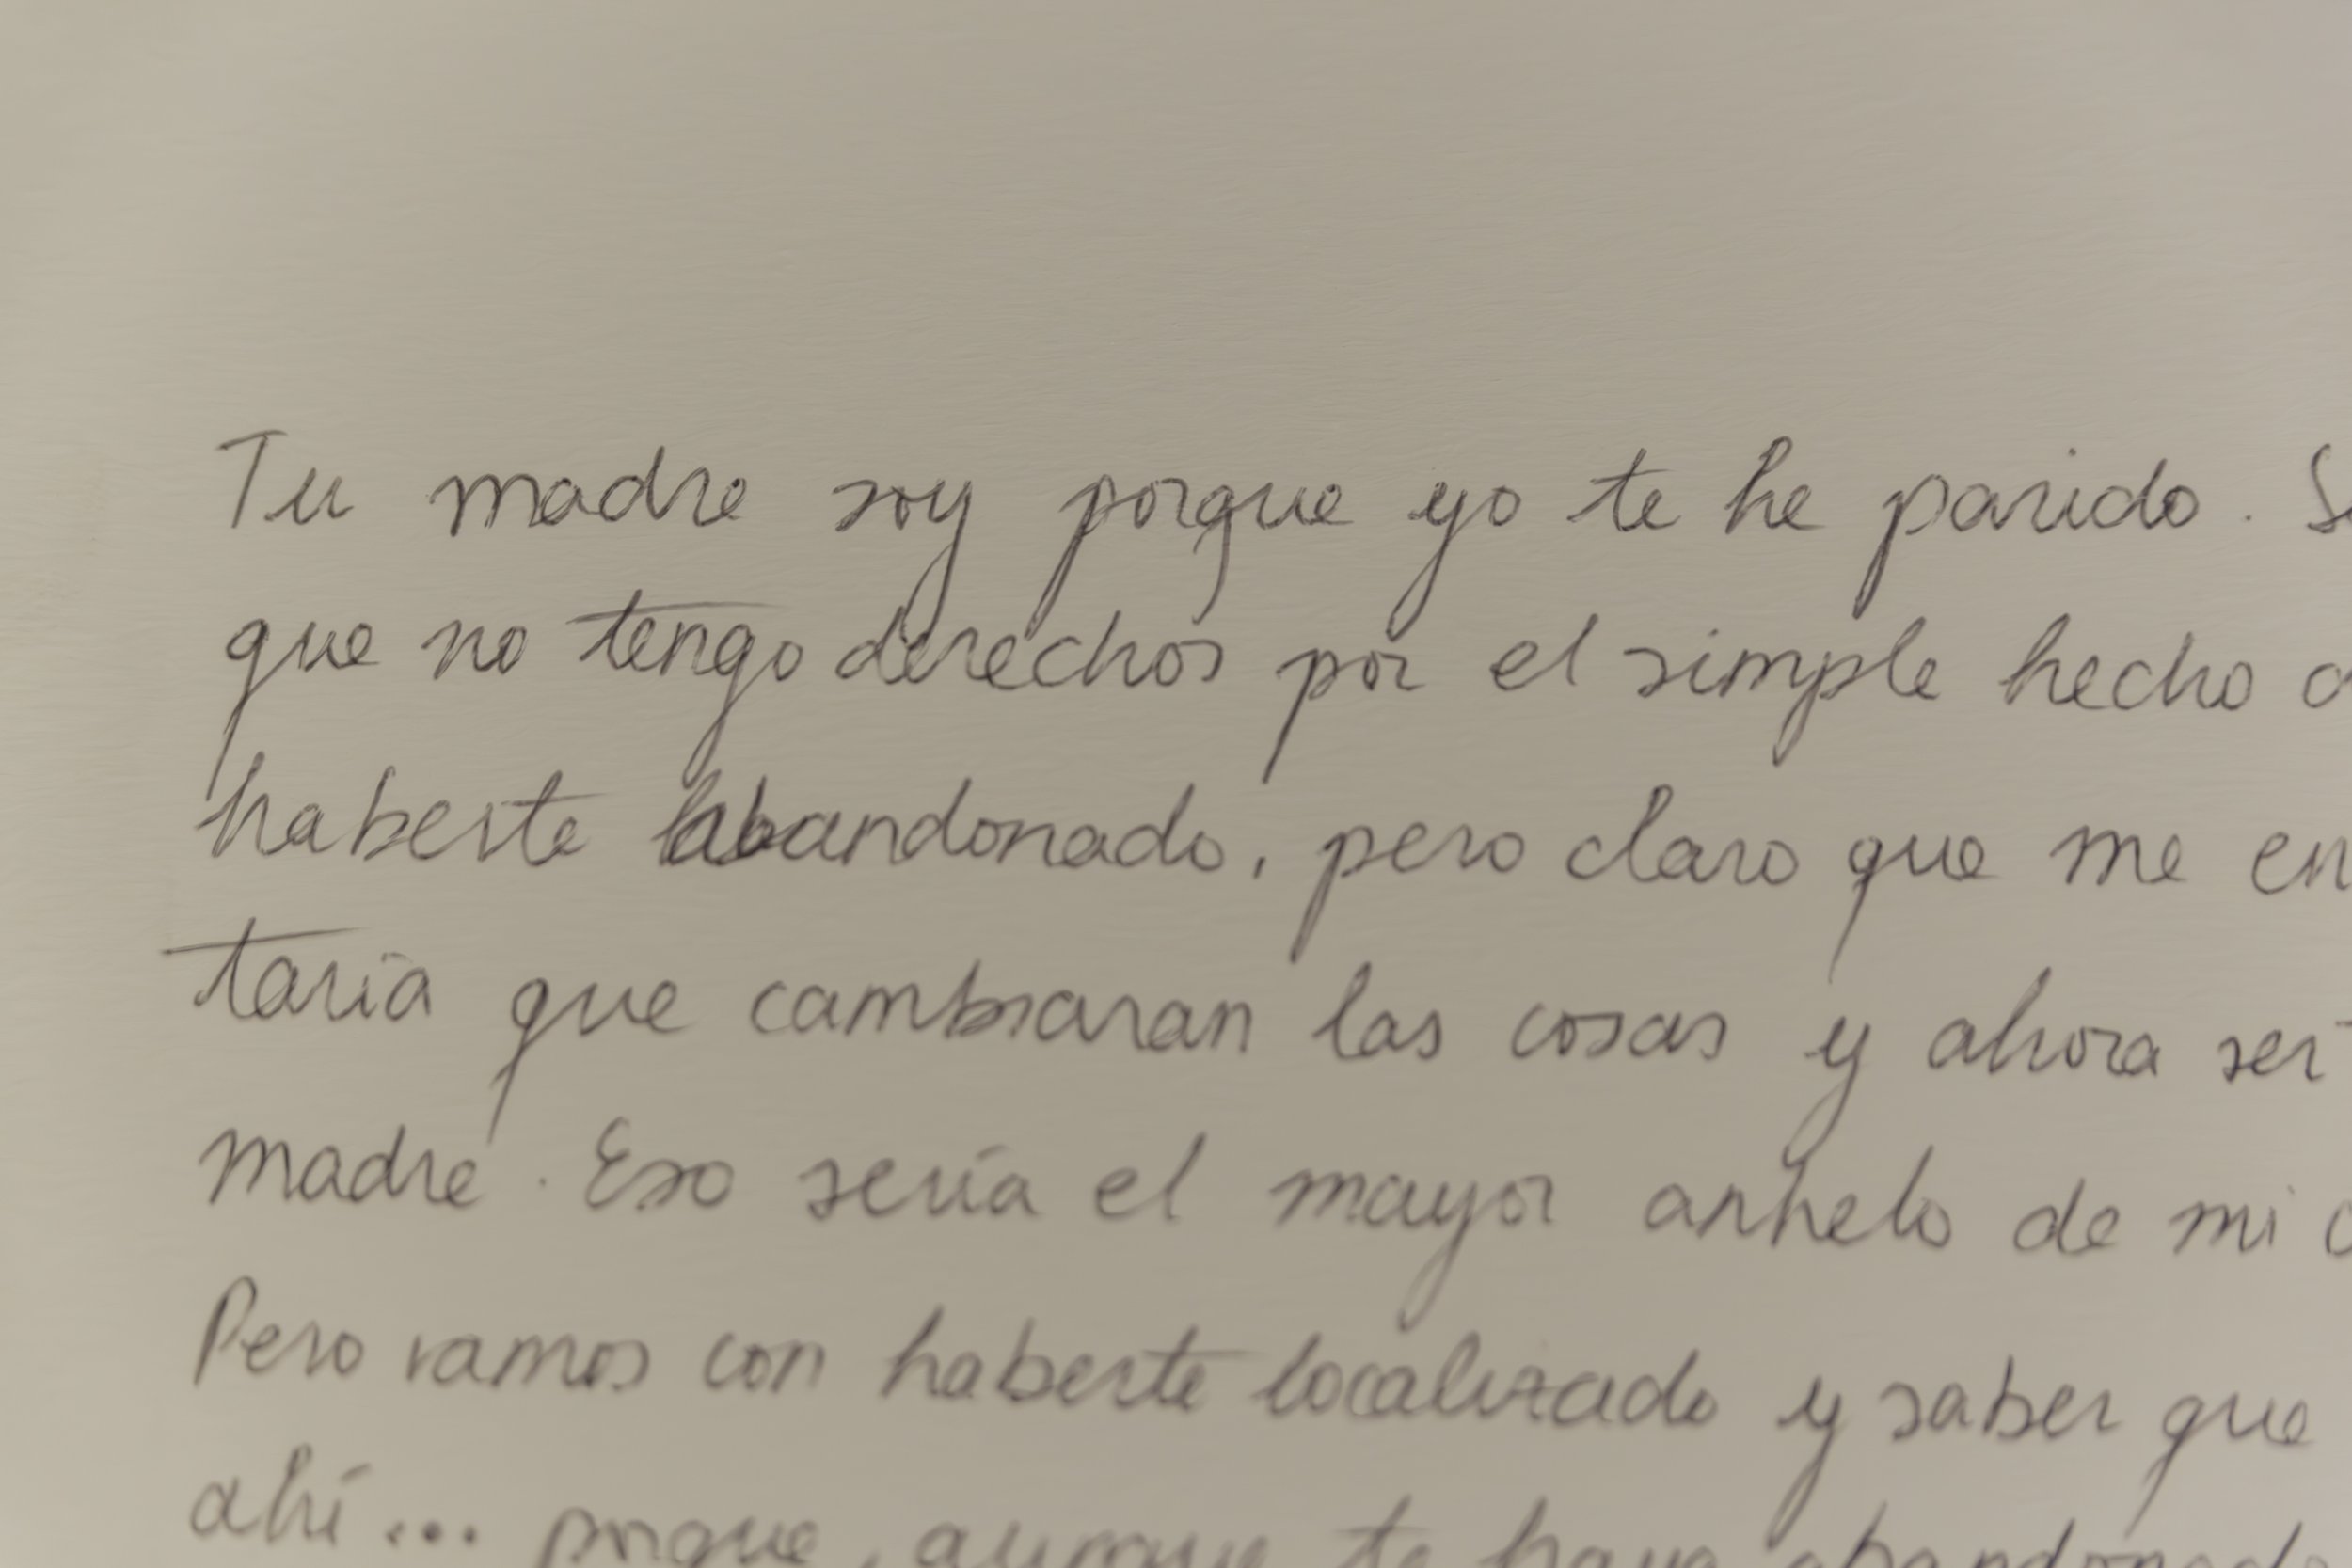 Tu madre soy porque yo te he parido. S
que no tengo derechos por el simple hecho d
haberte abandonado, pero claro que me en
taría que cambiaran las cosas y ahora ser
madre. Eso sería el mayor anhelo de mi
Pero vamos con haberte localizado y saber que
ahí... porque, aunque te haya abandonado